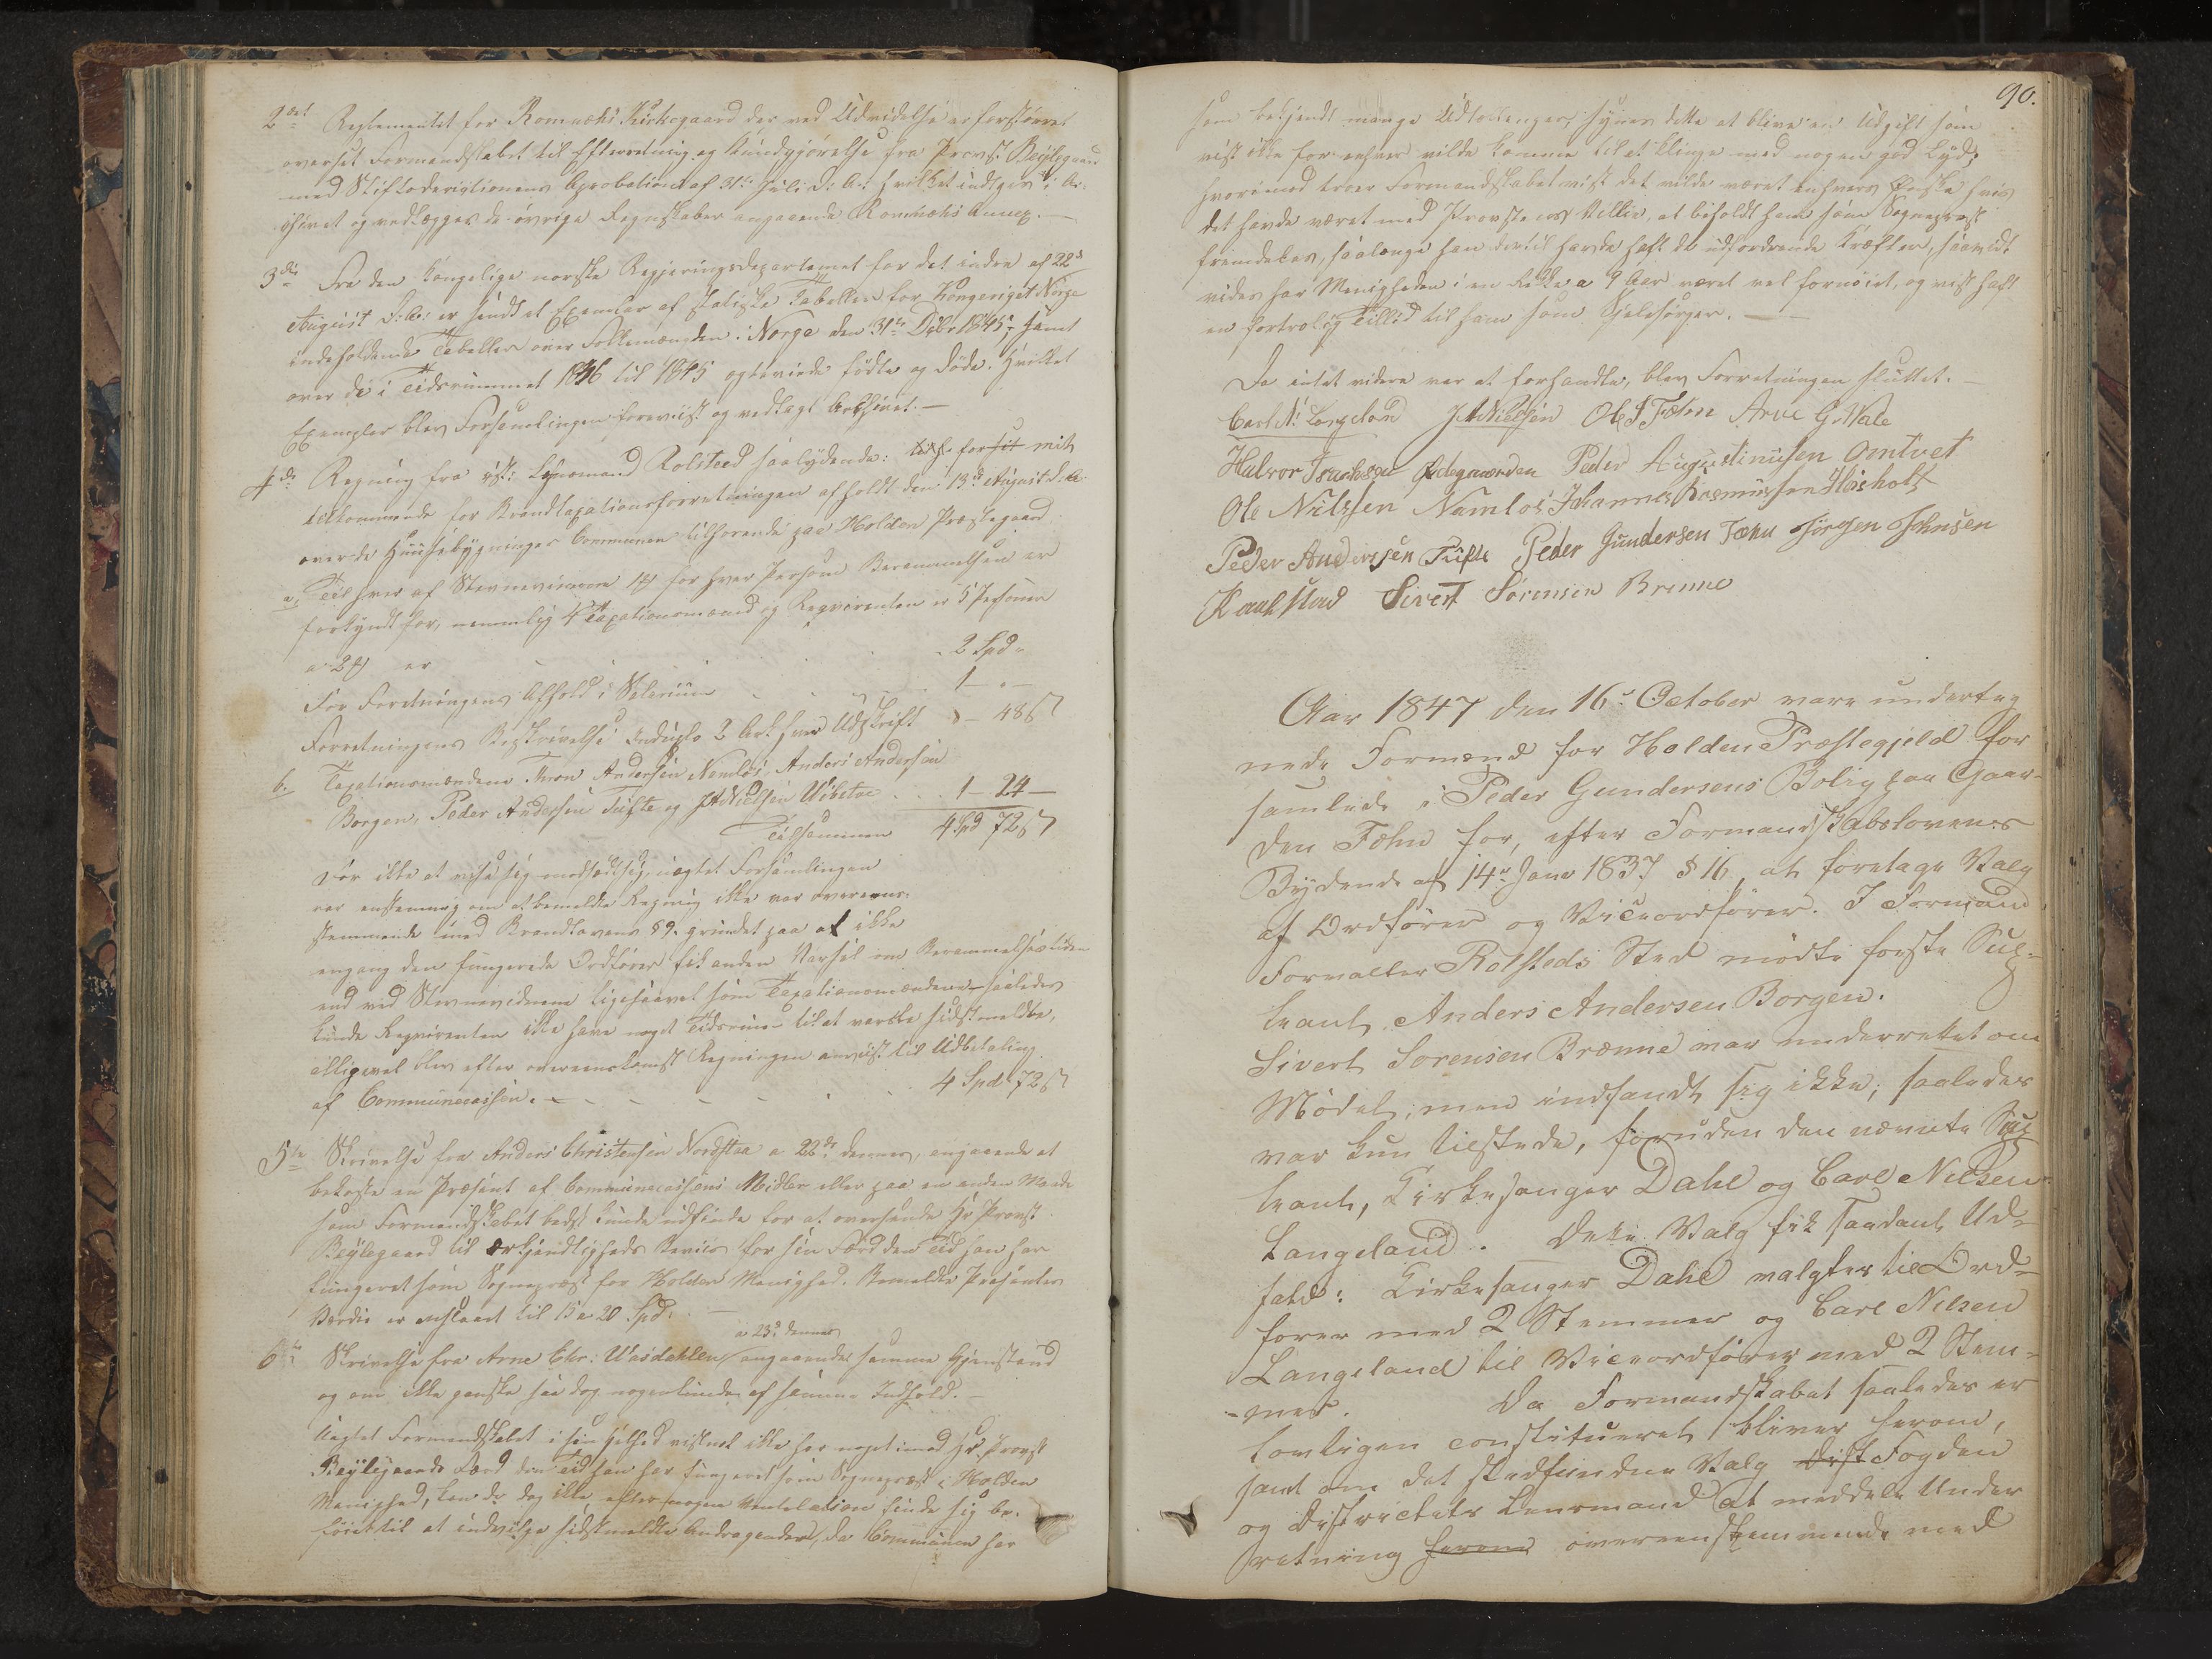 2det Reglementet for Romnæhs Kirkegaard der ved Udvidelse er forstørret
oversat Formandskabet til Efterretning og Kundgjørelse fra Provst Beylegaard
med Stiftsdirectionens Aprobation af 31te Juli d: A: hvilket indtages i Ar-
chivet og vedlægges de øvrige Regnskaber angaaende Romnæhs Annex. —
3die Fra den kongelige norske Regjeringsdepartemet for det indre af 22de
August d: A: er sendt et Exemplar af Tabeller for Kongeriget Norge
indeholdende Tabeller over Folkemængden i Norge den 31te Dcbr 1845, samt
over de i Tidsrummet 1836 til 1845 ægteviede fødte og døde. Hvilket
Exemplar blev Forsamlingen foreviist og vedlagt Archivet. —
4de Regning fra Lensmand Rolsteed saalydende: mit
tilkommende for Brandtaxationsforretningen afholdt den 13de August d: A:
over de Huusebygninger Communen tilhørende paa Holden Præstegaard
a, Til hver af Stevnevidnerne for hver Person Berammelsen er
forkyndt for, nemmlig 4 Taxationsmænd og Reqvirenten er 5 Personer
a er 2 Spd
For Forretningens Afhold i Salarium 1 - " -
Forretningens Beskrivelse 2 Ark hver Udskrift - 48 ß
b. Taxationsmændene Thron Andersen Namløs, Anders Andersen
Borgen, Peder Andersen Tufte og J A Nielsen Ubetvæ 1 - 24 -
Tilsammen 4 Spd 72 ß
For ikke at vise sig modsædtlig, uagtet Forsamlingen
var enstemmig om at bemeldte Regning ikke var overeens-
stemmende med Brandlovens § 9. grundet paa at ikke
engang den fungerede Ordfører fik anden Varsel om Berammelsestiden
end ved Stevnevidnerne ligesaavel som Taxationsmændene - saaledes
kunde Reqvirenten ikke have noget Tidsrum til at varsle sidstmeldte,
alligevel blev efter overeenskomst Regningen anviist til Udbetaling
af Communecassen. - - - - - 4 Spd 72 ß
5te Skrivelse fra Anders Christensen Nordstaa a 22de dennes, angaaende at
bekoste en Præsent af Communecassens Midler eller paa en anden Maade
som Formandskabet bedst kunde udfinde for at oversende Hr Provst
Beylegaard til Erkjendtligheds Beviis for sin Færd den Tid han har
fungeret som Sogneprest for Holden Menighed. Bemeldte Presentes
Værdie er anslaaet til 15 a 20 Spd. —
a 23de dennes
6te Skrivelse fra Arne Chr: Uasdahlen angaaende samme Gjenstand
og om ikke ganske saa dog nogenlunde af samme Indhold. —
Uagtet Formandskabet i sin Helhed vistnok ikke har noget imod Hr Provst
Beylegaards Færd den Tid han har fungeret som Sogneprest i Holden
Menighed, kan de dog ikke efter nogen finde sig be-
føiet til at indvilge sidstmeldte Andragender, da Communen har
90.
som bekjendt mange Udtællinger, synes dette at blive en Udgift som
vist ikke for enhver vilde komme til at klinge med nogen god Lyd;
hvorimod troer Formandskabet vist det vilde været enhvers Ønske hvis
det havde været med Provstens Villie, at beholdt ham som Sogneprest
fremdeles, saalænge han dertil havde haft de udfordrende Kræfter, saavidt
vides har Menigheden i en Række a 9 Aar været vel fornøiet, og vist haft
en fortrolig Tillid til ham som Sjelesørger. —
Da intet videre var at forhandle, blev Forretningen sluttet. —
Carl N: Langeland J A Nielsen Ole J Fæhn Arve G. Vale
Halvor Isachsen Ødegaarden Peder Augustinusen Omtvet
Ole Nilssen Namløs Johannes Rasmussen Høisholt
Peder Anderssen Tufte Peder Gundersen Fæhn Jørgen Johnsen
Kaahstad Sivert Sørensen Brenne
Aar 1847 den 16de October vare underteg
nede Formænd for Holden Præstegjeld for
samlede i Peder Gundersens Bolig paa Gaar-
den Fæhn for, efter Formandskabslovenes
Bydende af 14de Janv 1837 § 16, at foretage Valg
af Ordfører og Viceordfører. I Formand
Forvalter Rolsteds Sted mødte første Sup-
leant Anders Andersen Borgen.
Sivert Sørensen Brænne var underrettet om
Mødet, men indfandt sig ikke, saaledes
var kun tilstede, foruden den nævnte Sup
leant, Kirkesanger Dahl og Carl Nielsen
Langeland. Dette Valg fik saadant Ud-
fald: Kirkesanger Dahl valgtes til Ord-
fører med 2 Stemmer og Carl Nilsen
Langeland til Viceordfører med 2 Stem-
-mer. Da Formandskabet saaledes er
lovligen constitueret, bliver herom,
samt om det stedfundne Valg Dist Fogden
og Districtets Lensmand at meddele Under
retning herom overeenstemmende med